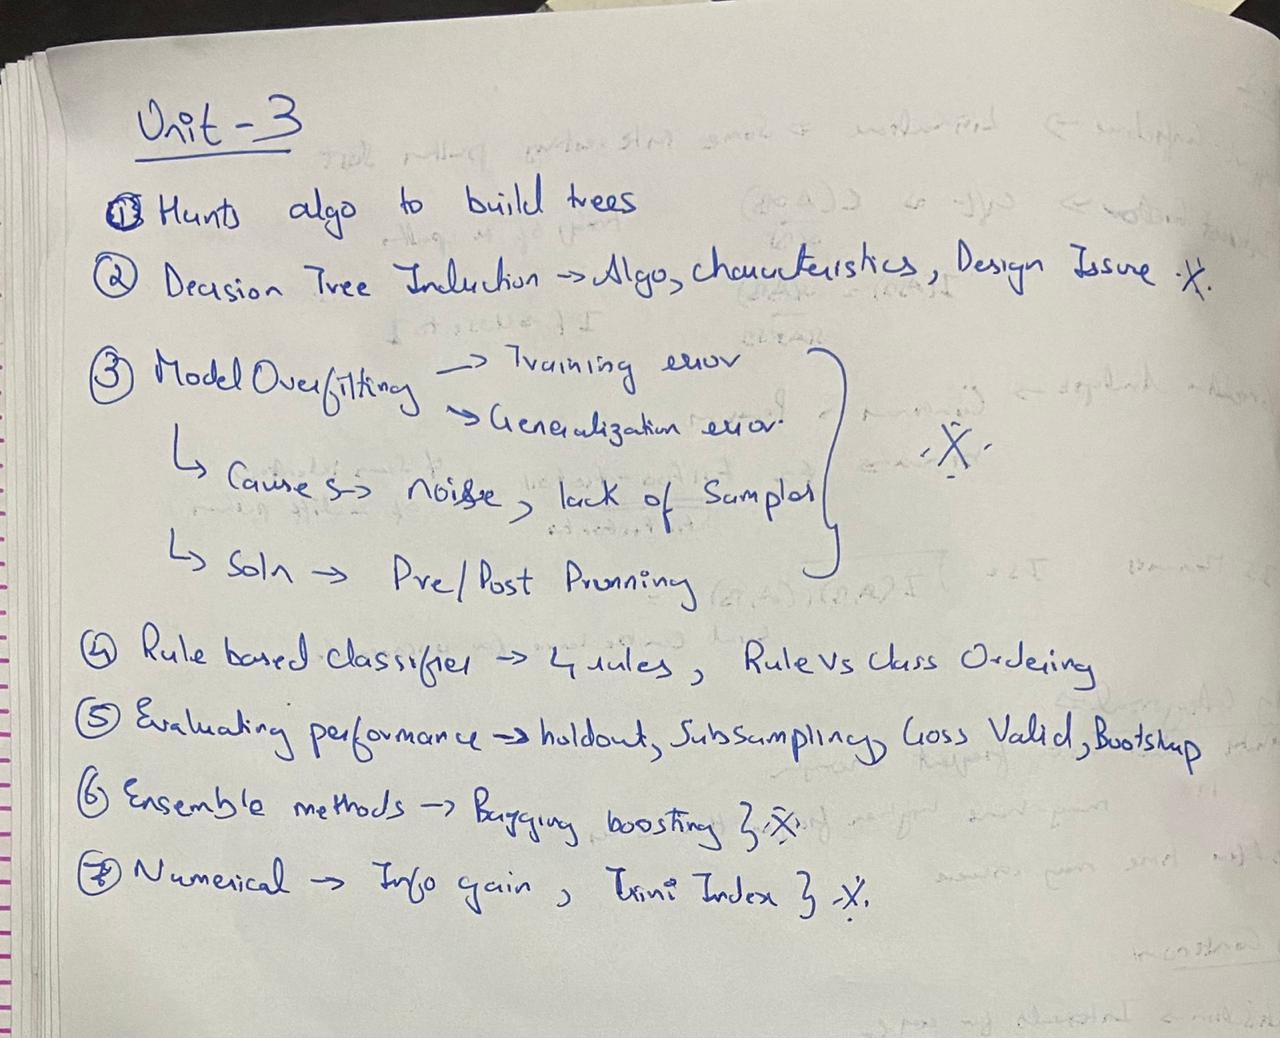 Unit - 3
① Hunts algo to build trees
② Decision Tree Induction → Algo, characteristics, Design Issue ※
③ Model Overfitting → Training error
→ Generalization error
↳ Causes → noise, lack of Samples } ※
↳ Soln → Pre/Post Prunning
④ Rule based classifier → 4 rules, Rule vs Class Ordering
⑤ Evaluating performance → holdout, Subsampling, Cross Valid, Bootstrap
⑥ Ensemble methods → Bagging boosting } ※
⑦ Numerical → Info gain, Gini Index } ※